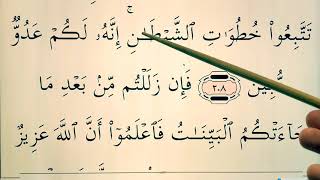 تَتَّبِعُوا۟ خُطُوَٰتِ ٱلشَّيْطَـٰنِ ۚ إِنَّهُۥ لَكُمْ عَدُوٌّ
مُّبِينٌ ٢٠٨ فَإِن زَلَلْتُم مِّنۢ بَعْدِ مَا
جَآءَتْكُمُ ٱلْبَيِّنَـٰتُ فَٱعْلَمُوٓا۟ أَنَّ ٱللَّهَ عَزِيزٌ